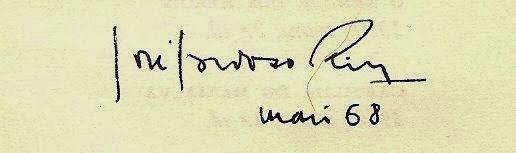 José Cardoso Pires
Maio 68